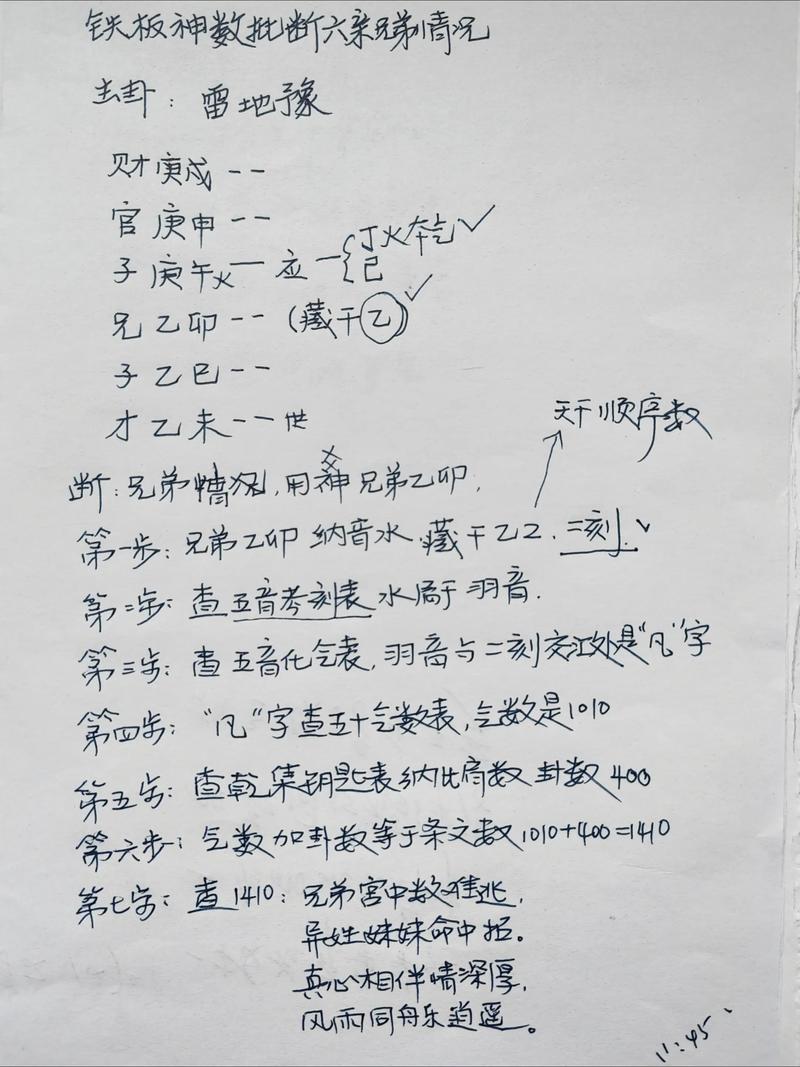 铁板神数批断六亲兄弟情况
主卦：雷地豫
财庚戌 --
官庚申 --
子庚午火 一 应 一 { 丁火本气 ✓
己
兄乙卯 -- (藏干乙) ✓
子乙巳 --
才乙未 -- 世
天干顺序数
断：兄弟情况，用神兄弟乙卯，
第一步：兄弟乙卯 纳音水 藏干乙2. 二刻 ✓
第二步：查五音考刻表 水属于羽音.
第三步：查五音化气表，羽音与二刻交汇处是“凡”字
第四步：“凡”字查五十气数表，气数是1010
第五步：查乾集钥匙表纳比肩数 卦数 400
第六步：气数加卦数等于条文数1010+400=1410
第七步：查1410：兄弟宫中数难逃，
异姓妹妹命中招。
真心相伴情深厚，
风雨同舟乐逍遥。
11:45